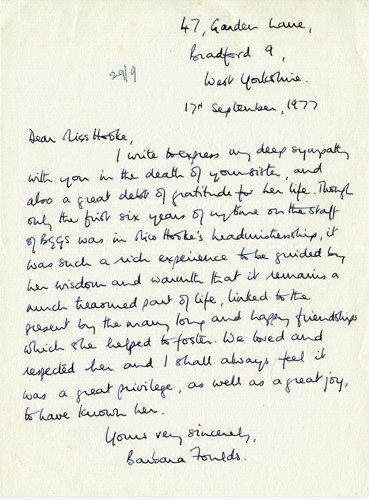 47, Garden Lane,
Bradford 9,
West Yorkshire.
29/9
17th September, 1977
Dear Miss Hooke,
I write to express my deep sympathy
with you in the death of your sister, and
also a great debt of gratitude for her life. Though
only the first six years of my time on the staff
of BGGS was in Miss Hooke's headmistressship, it
was such a rich experience to be guided by
her wisdom and warmth that it remains a
much treasured part of life, linked to the
present by the many long and happy friendships
which she helped to foster. We loved and
respected her and I shall always feel it
was a great privilege, as well as a great joy,
to have known her.
Yours very sincerely,
Barbara Foulds.